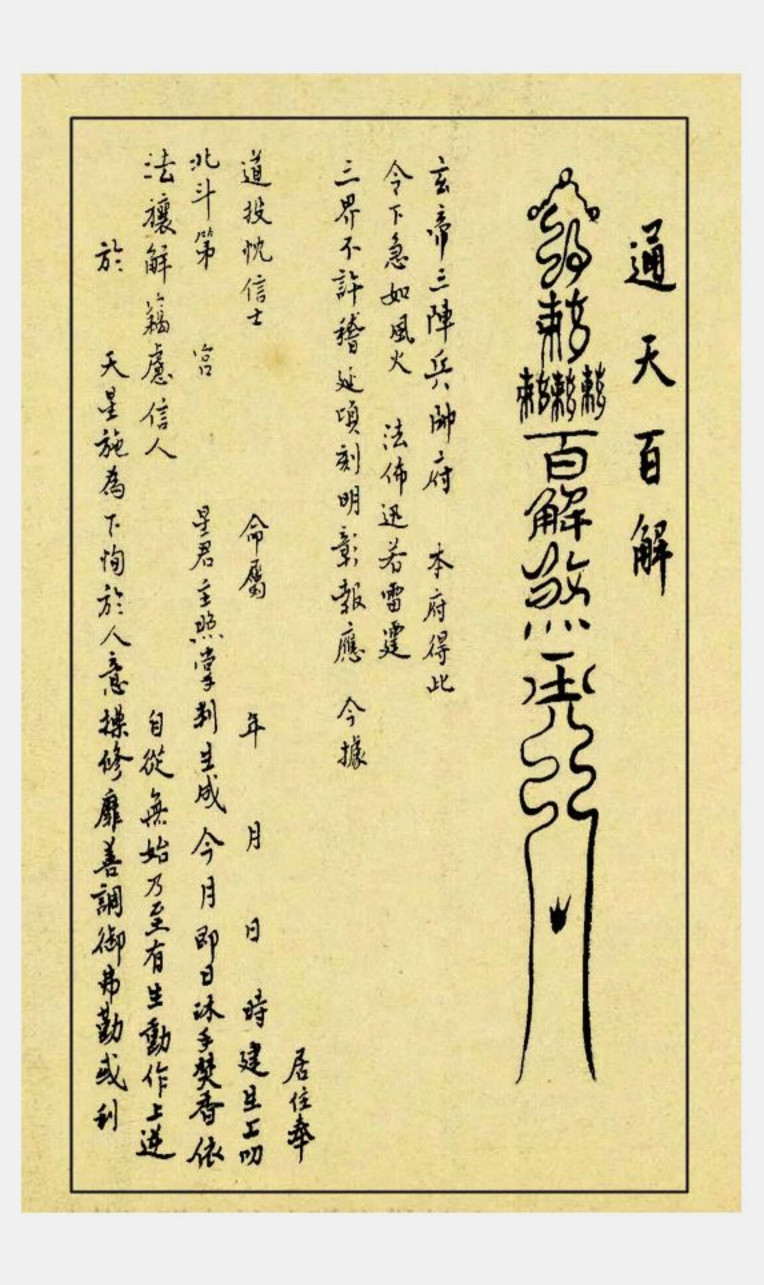 通天百解
敕
敕敕敕
百解煞
玄帝三陣兵帥府 本府得此
令下急如風火 法佈迅若雷霆
三界不許稽延頃刻明彰報應 今據
居住奉
道投忱信士 命屬 年 月 日 時建生工叨
北斗第 宮 星君主照掌判生成今月即日沐手焚香依
法禳解 信人 自從無始乃至有生動作上逆
於 天星施為下恂於人意操修靡善調御弗勤或利